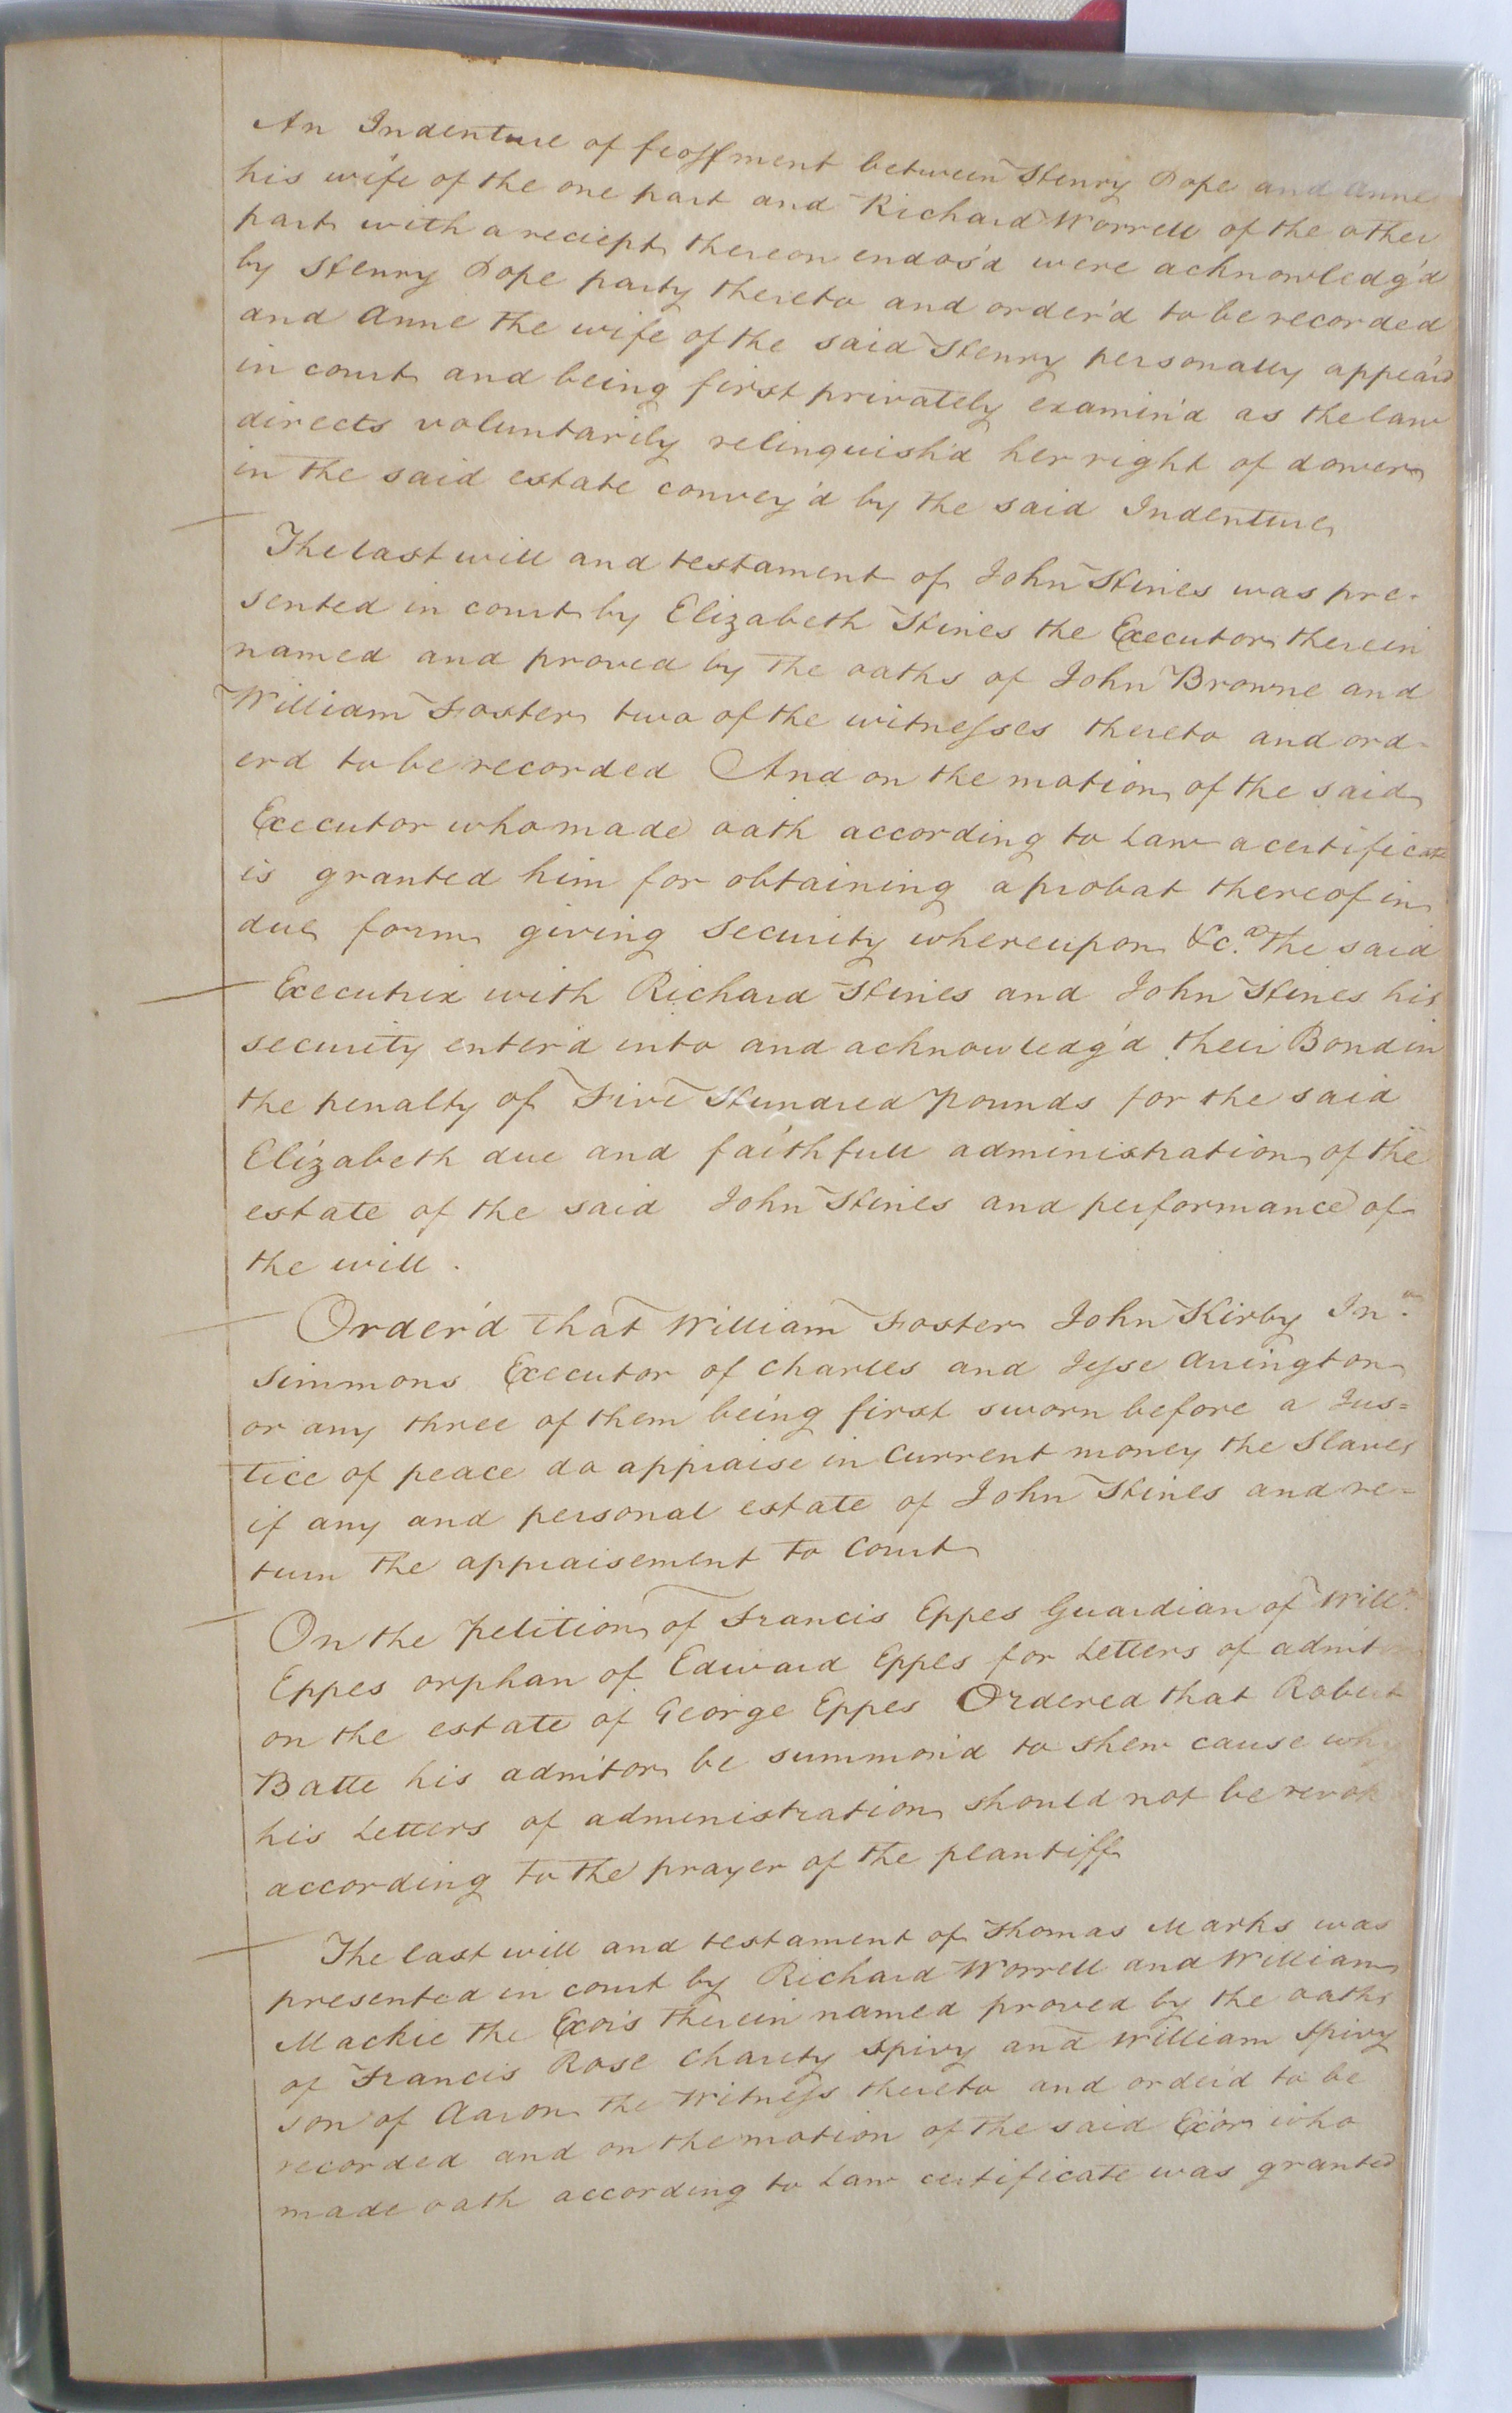 An Indenture of feoffment between Henry Pope and Anne
his wife of the one part and Richard Worrell of the other
part with a reciept thereon endos'd were acknowledg'd
by Henry Pope party thereto and order'd to be recorded
and Anne the wife of the said Henry personally appear'd
in court and being first privately examin'd as the law
directs voluntarily relinquish'd her right of dower
in the said estate convey'd by the said Indenture
The last will and testament of John Hines was pre-
sented in court by Elizabeth Hines the Executor therein
named and proved by the oaths of John Browne and
William Foster two of the witnesses thereto and ord-
erd to be recorded And on the motion of the said
Executor who made oath according to Law a certificate
is granted him for obtaining a probat thereof in
due form giving Security whereupon &c.a The said
Executrix with Richard Hines and John Hines his
security enter'd into and acknowledg'd their Bond in
the penalty of Five Hundred pounds for the said
Elizabeth due and faithfull administration of the
estate of the said John Hines and performance of
the will.
Order'd that William Foster John Kirby Jn.o
Simmons Executor of Charles and Jesse Arington
or any three of them being first sworn before a Jus=
tice of peace do appraise in Current money the Slaves
if any and personal estate of John Hines and re=
turn the appraisement to Court
On the petition of Francis Eppes Guardian of Will.m
Eppes orphan of Edward Eppes for Letters of
on the estate of George Eppes Ordered that Robert
Batte his admitor be summon'd to shew cause why
his Letters of administration should not be
according to the prayer of the plantiff
The last will and testament of Thomas Marks was
presented in court by Richard Worrell and William
Mackie the Exors therein named proved by the oaths
of Francis Rose Charity Spivy and William Spivy
son of Aaron the Witness thereto and order'd to be
recorded and on the motion of the said Exor who
made oath according to Law certificate was granted